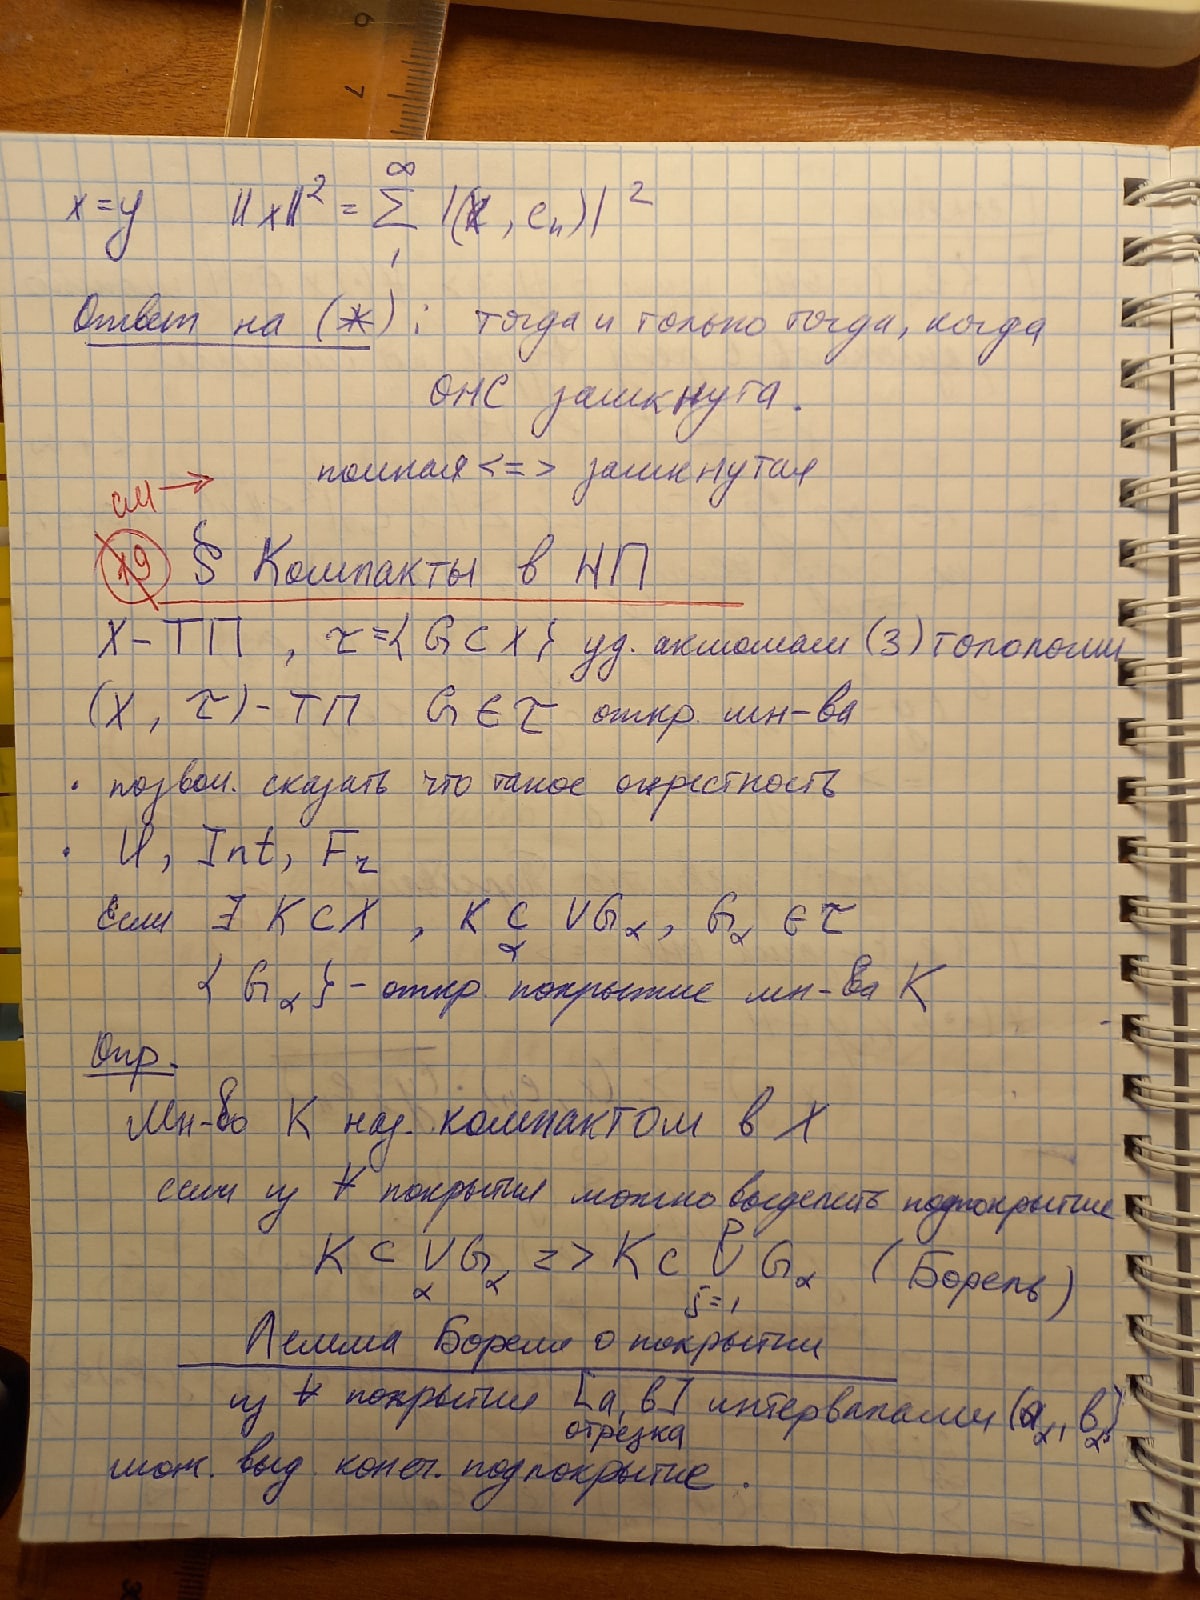 x=y ||x||² = ∑₁^∞ |(x, eₙ)|²
Ответ на (*): тогда и только тогда, когда
ОНС замкнута.
полная <=> замкнутая
см →
19 § Компакты в НП
X-ТП, τ={G⊂X} уд. аксиомам (3) топологии
(X, τ)-ТП G∈τ откр. мн-ва
· позвол. сказать что такое окрестность
· U, Int, Fr
Если ∃ K⊂X, K ⊂ ∪G_α, G_α ∈τ
α
{G_α} - откр. покрытие мн-ва K
Опр.
Мн-во K наз. компактом в X
если из ∀ покрытия можно выделить подпокрытие
K ⊂ ∪_α G_α => K ⊂ ∪_{j=1}^p G_α (Борель)
Лемма Бореля о покрытии
из ∀ покрытия [a, b] интервалами (a_α, b_α)
отрезка
мож. выд конеч. подпокрытие.
6
7